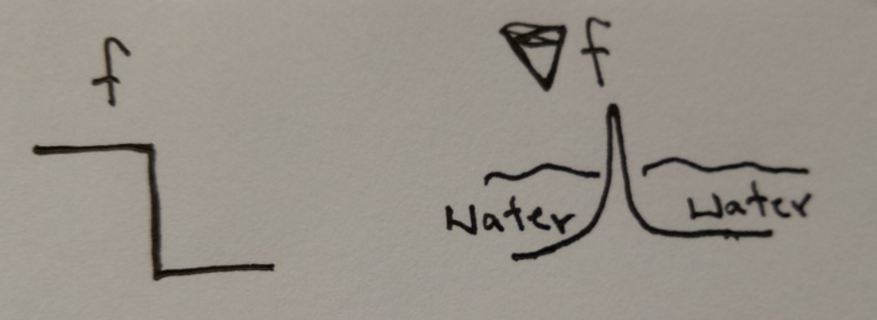 f
∇ f
Water Water